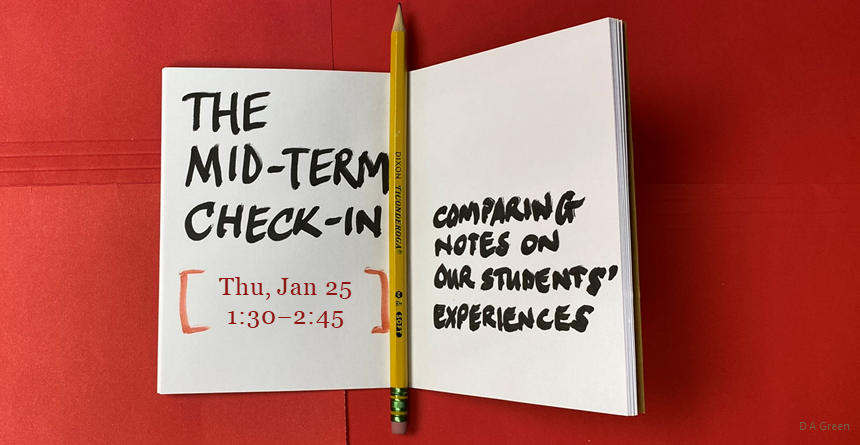 THE
MID-TERM
CHECK-IN
Thu, Jan 25
1:30–2:45
DIXON TICONDEROGA®
SOFT
COMPARING
NOTES ON
OUR STUDENTS'
EXPERIENCES
D A Green